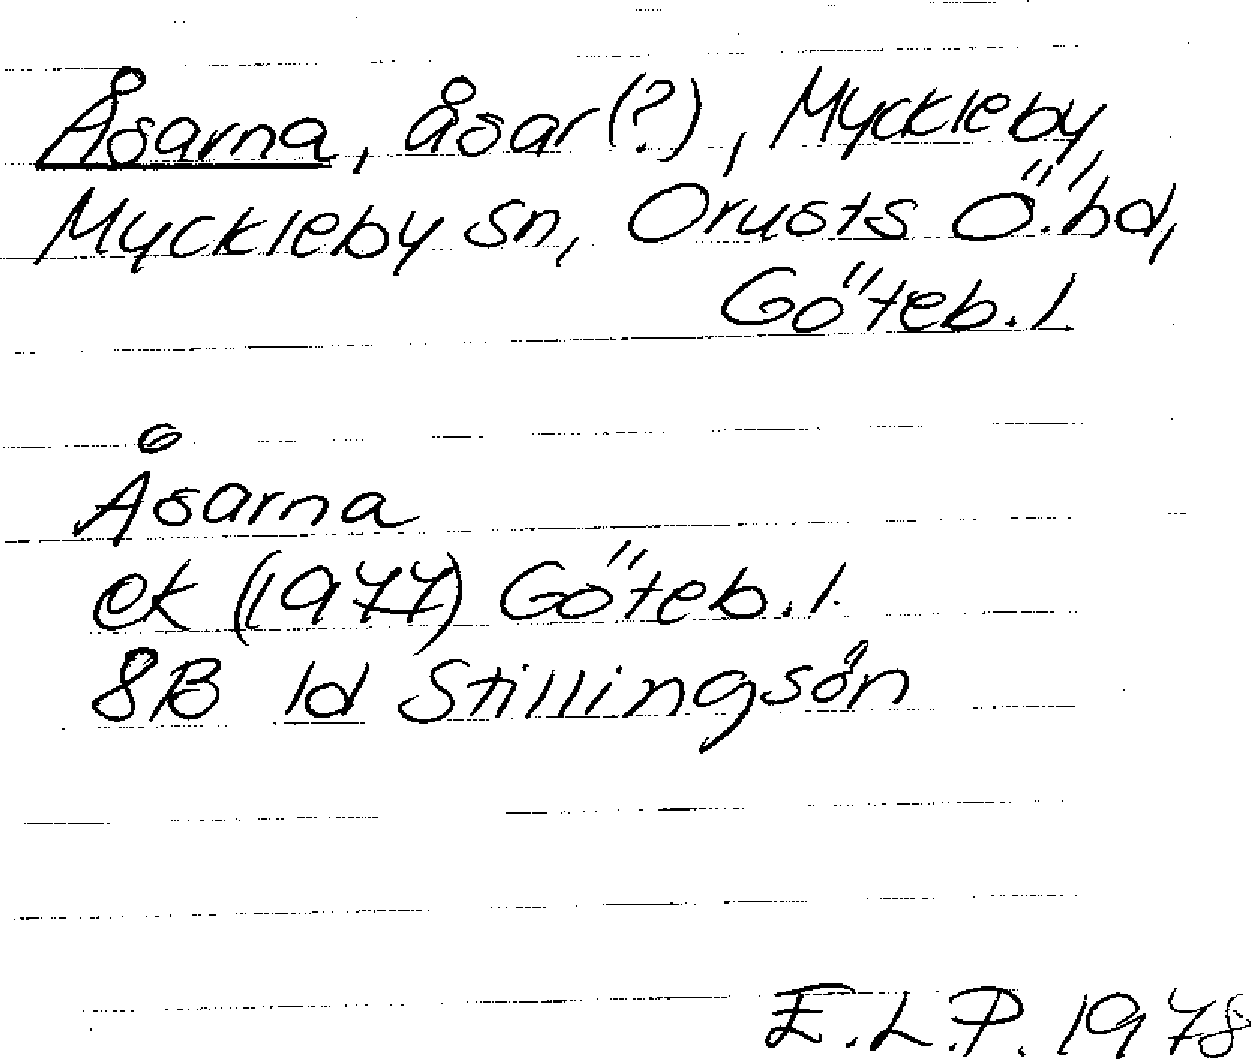 Åsarna, åsar(?), Myckleby,
Myckleby sn, Orusts Ö.hd,
Göteb.l.
Åsarna
ek (1977) Göteb.l.
8B 1d Stillingsön
E.L.P. 1978